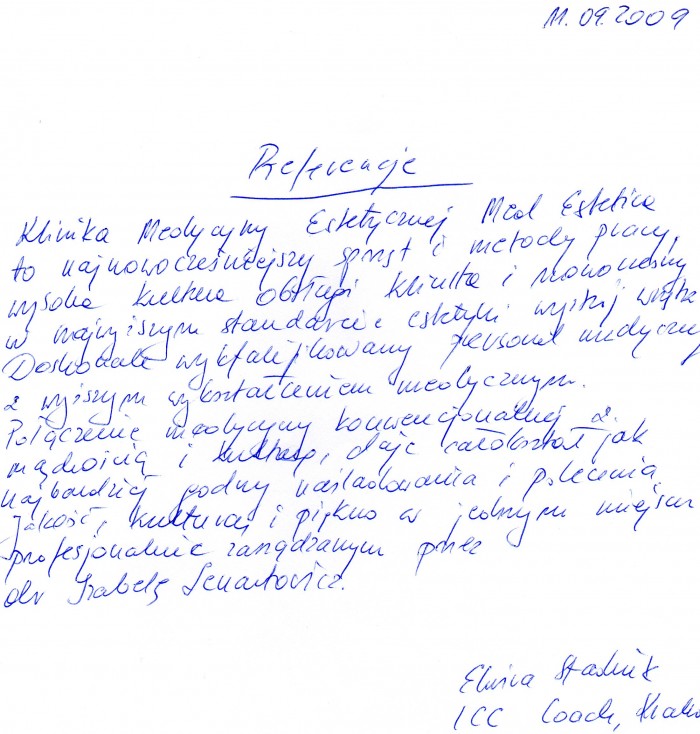 11.09.2009
Referencje
Klinika Medycyny Estetycznej Med Estetica
to najnowocześniejszy sprzęt i metody pracy,
wysoka kultura obsługi klienta i
w najwyższym standardzie estetyki
Doskonale wykfalifikowany personel medyczny
z wyższym wykształceniem medycznym.
Połączenie medycyny konwencjonalnej z
mądrością i kulturą, daje całokształt jak
najbardziej godny naśladowania i polecenia.
Jakość, kultura i piękno w jednym miejscu
profesjonalnie zarządzanym przez
dr Izabelę Lenartowicz.
Elwira
ICC Coach,